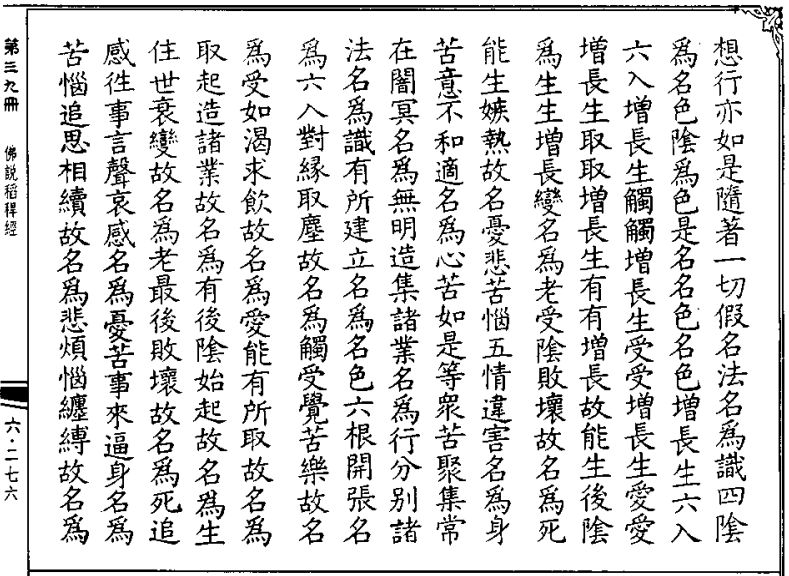 想行亦如是隨著一切假名法名為識四陰
為名色陰為色是名名色名色增長生六入
六入增長生觸觸增長生受受增長生愛愛
增長生取取增長生有有增長故能生後陰
為生生增長變名為老受陰敗壞故名為死
能生嫉熱故名憂悲苦惱五情違害名為身
苦意不和適名為心苦如是等眾苦聚集常
在闇冥名為無明造集諸業名為行分別諸
法名為識有所建立名為名色六根開張名
為六入對緣取塵故名為觸受覺苦樂故名
為受如渴求飲故名為愛能有所取故名為
取起造諸業故名為有後陰始起故名為生
住世衰變故名為老最後敗壞故名為死追
感往事言聲哀感名為憂苦事來逼身名為
苦惱追思相續故名為悲煩惱纏縛故名為
第三九冊 佛說稻稈經 六·二七六